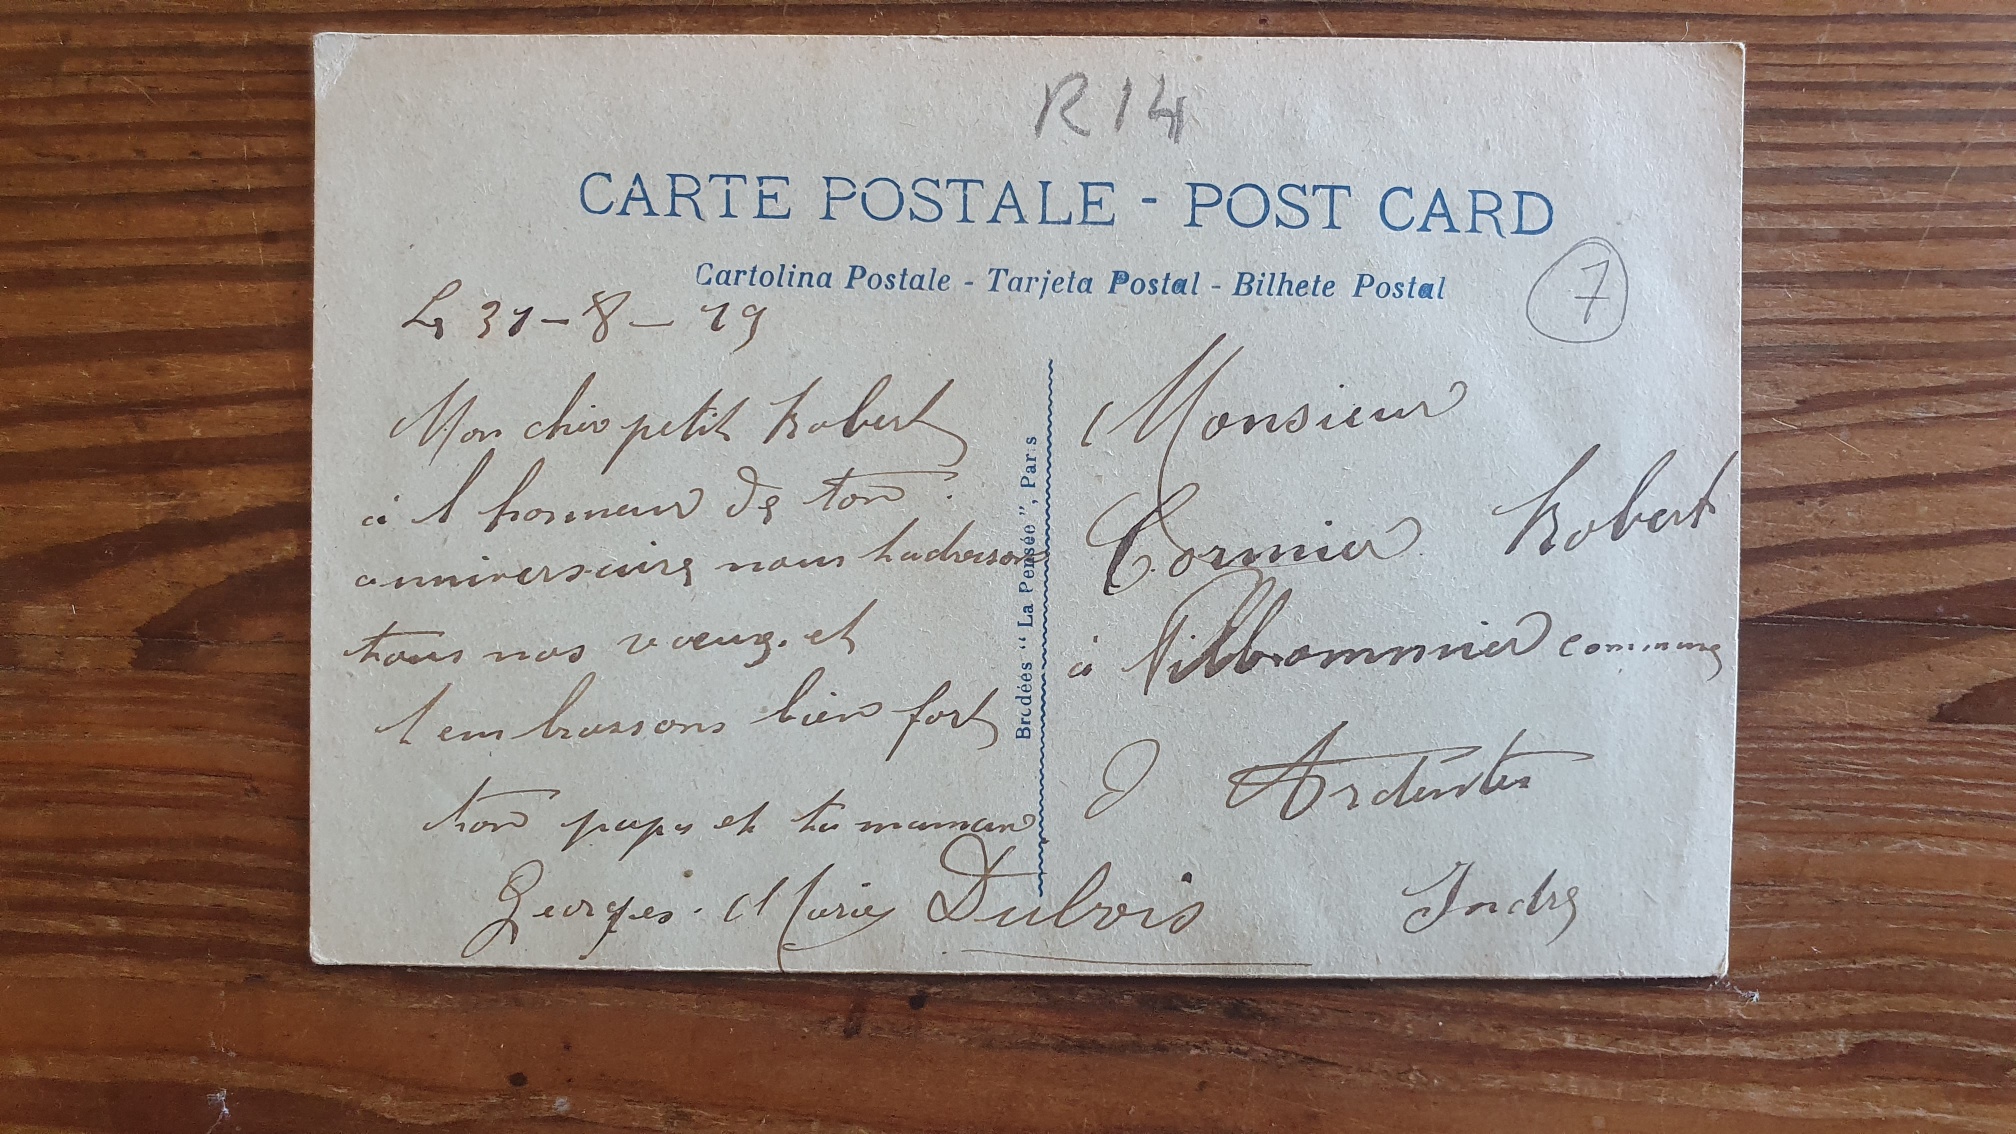 R14
CARTE POSTALE - POST CARD
Cartolina Postale - Tarjeta Postal - Bilhete Postal
7
Le 31-8-19
Mon cher petit Robert
à l honneur de ton
anniversaire nous tadresson
tous nos voeux. et
t embrassons bien fort
ton papa et ta maman
Georges. Marie Dubois
Brodées "La Pensée", Paris
Monsieur
Cormier Robert
à commune
D Ardentes
Indre